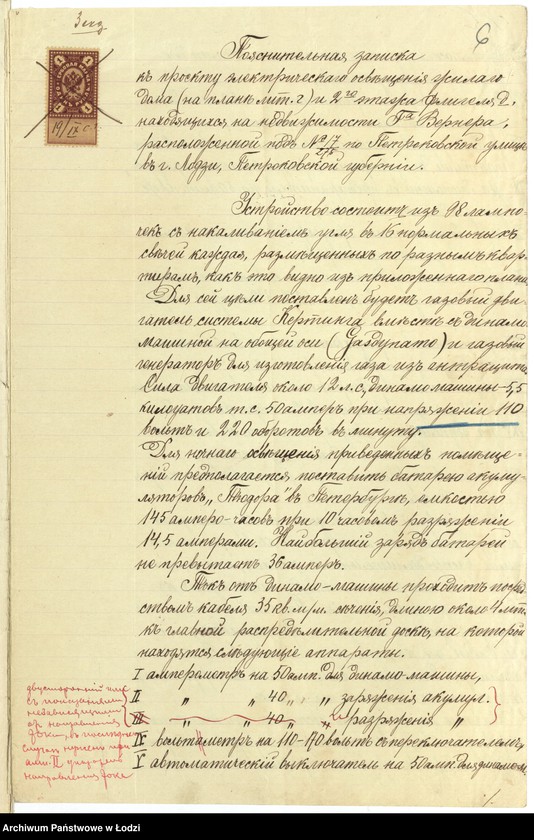 3 экз
6
14/IX
Пояснительная записка
къ проэкту электрическаго освѣщенія жилаго
дома (на планѣ лит. г) и 2го этажа флигеля д.
находящихся на недвижимости Га Вернера,
расположенной подъ № 17/276 по Петроковской улицѣ
въ г. Лодзи, Петроковской губерніи.
Устройство состоитъ изъ 98 лампо-
чекъ съ накаливаніемъ угля въ 16 нормальныхъ
свѣчей каждая, размѣщенныхъ по разнымъ квар-
тирамъ, какъ это видно изъ приложеннаго плана.
Для сей цѣли поставленъ будетъ газовый дви-
гатель системы Кертинга вмѣстѣ съ динамо
машиной на общей оси (Gazdynamo) и газовый
генераторъ для изготовленія газа изъ антрацита.
Сила двигателя около 12 л.с., динамомашины - 5,5
килоуатовъ т.с. 50 амперъ при напряженіи 110
вольтъ и 220 оборотовъ въ минуту.
Для ночнаго освѣщенія приведенныхъ помѣще-
ній предполагается поставить батарею акуму-
ляторовъ „Тюдора" въ Петербургѣ, емкостью
145 амперо-часовъ при 10 часовомъ разряженіи
14,5 амперами. Наибольшій зарядъ батареи
не превышаетъ 36 амперъ.
Токъ отъ динамо-машины проходитъ посред-
ствомъ кабеля 35 кв. м/м. сѣченія, длиною около 4 мт.
къ главной распредѣлительной доскѣ, на которой
находятся слѣдующіе аппараты.
I амперометръ на 50 амп. для динамо-машины,
II „ „ 40 „ „ заряженія акумул.
III „ „ 40 „ „ разряженія „
IV вольтаметръ на 110-170 вольтъ съ переключателемъ,
V автоматическій выключатель на 50 амп. для динамом.
двусторонній
съ показаніями
независящими
отъ направленія
тока, въ
случаѣ при
амп. II
направленія тока
Archiwum Państwowe w Łodzi